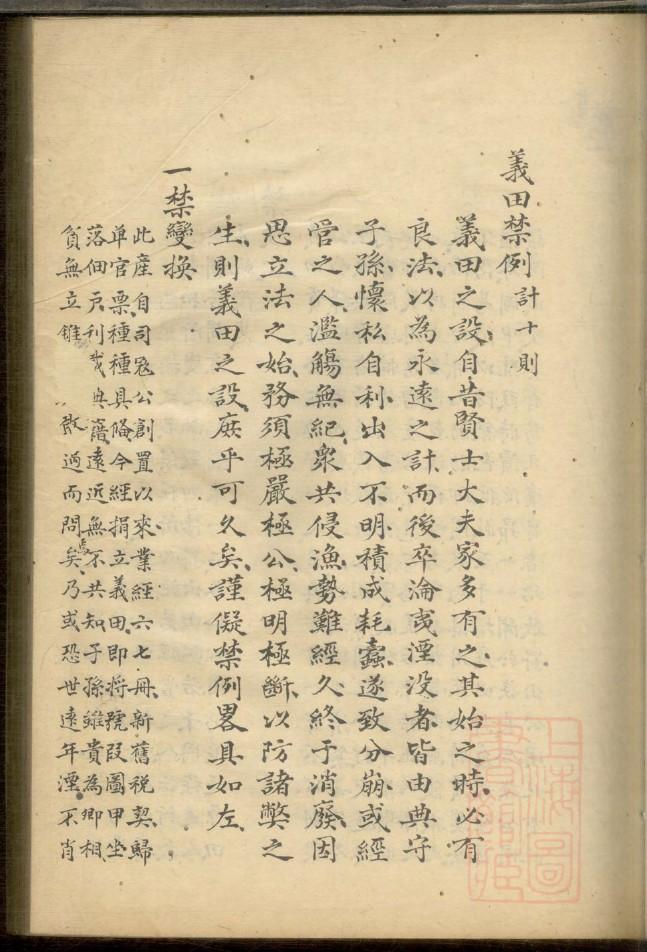 義田禁例計十則
義田之設自昔賢士大夫家多有之其始之時必有
良法以為永遠之計而後卒淪或湮沒者皆由典守
子孫懷私自利出入不明積成耗蠹遂致分崩或經
管之人濫觴無紀衆共侵漁勢難經久終于消廢因
思立法之始務須極嚴極公極明極斷以防諸弊之
生則義田之設庶乎可久矣謹儗禁例畧具如左
一禁變換
此產自司冦公創置以來業經六七冊新舊稅契歸
单官票種種具偹今經捐立義田即將號段圖甲坐
落佃戶利典遠近無不共知子孫雖貴為卿相
貧無立錐敢過而問焉矣乃或恐世遠年湮不肖
上海圖
書館藏